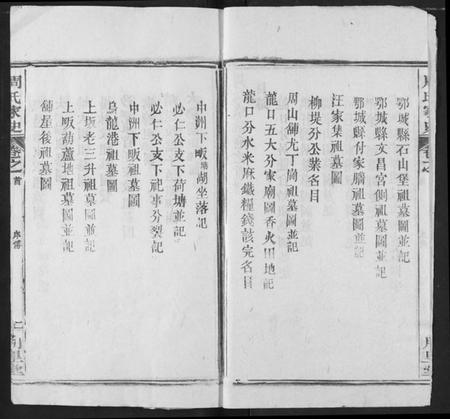 鄂城縣石山堡祖墓圖並記
鄂城縣文昌宮側祖墓圖並記
鄂城縣付家腦祖墓圖並記
汪家集祖墓圖
柳堤分公業各目
周山舖尤丁崗祖墓圖並記
龍口五大分家廟圖香火田地記
龍口分水米麻鐵糧錢該完各目
中洲下畈湖坐落記
必仁公支下荷塘並記
必仁公支下祀事分裂記
中洲下畈祖墓圖
烏龍港祖墓圖
上坂老三升祖墓圖並記
上畈葫蘆地祖墓圖並記
舖屋後祖墓圖
周氏家史
卷之首
二